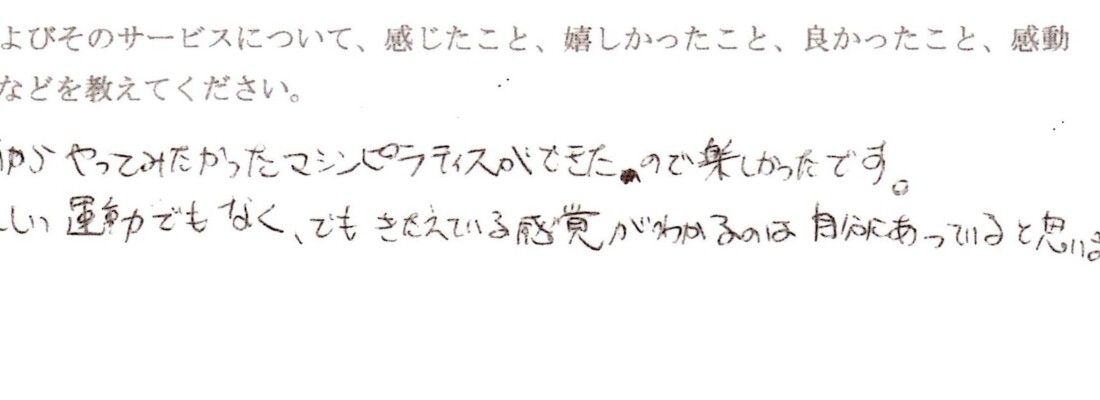 よびそのサービスについて、感じたこと、嬉しかったこと、良かったこと、感動
などを教えてください。
からやってみたかったマシンピラティスができたので楽しかったです。
しい運動でもなく、でもきたえている感覚がわかるのは自分にあっていると思いま